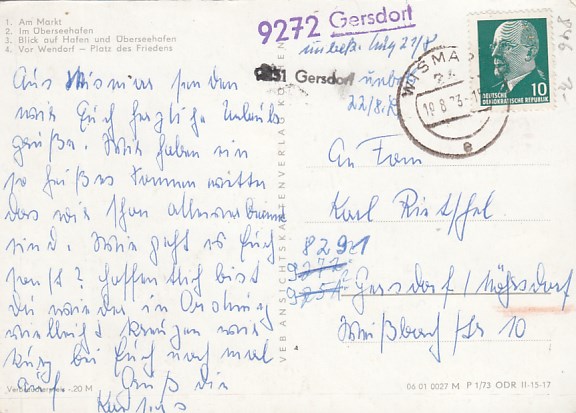 1. Am Markt
2. Im Überseehafen
3. Blick auf Hafen und Überseehafen
4. Vor Wendorf – Platz des Friedens
Aus Wismar senden
wir Euch herzliche Urlaubs
grüße. Wir haben ein
so heißes Sommerwetter
das wir schon allerwärts braun
sind. Wie geht es Euch
sonst? Hoffentlich bist
du wieder in Ordnung
vielleicht kommen wir
kurz bei Euch noch mal
Gruß die
VEB ANSICHTSKARTENVERLAG
9272 Gersdorf
unbek. 21/8
9251 Gersdorf unbek.
22/8.
WISMAR
19.8.73
e
DEUTSCHE
DEMOKRATISCHE REPUBLIK
10
An Fam
Karl Rietschel
8291
9272
9251 Gersdorf / Möhrsdorf
Weißbach/Str 10
Verbraucherpreis -.20 M
06 01 0027 M P 1/73 ODR II-15-17